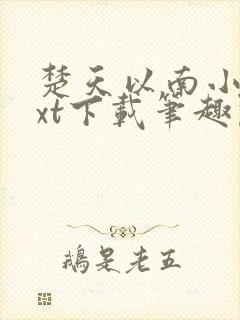 楚天以南小
xt下载笔趣
鹅是老五